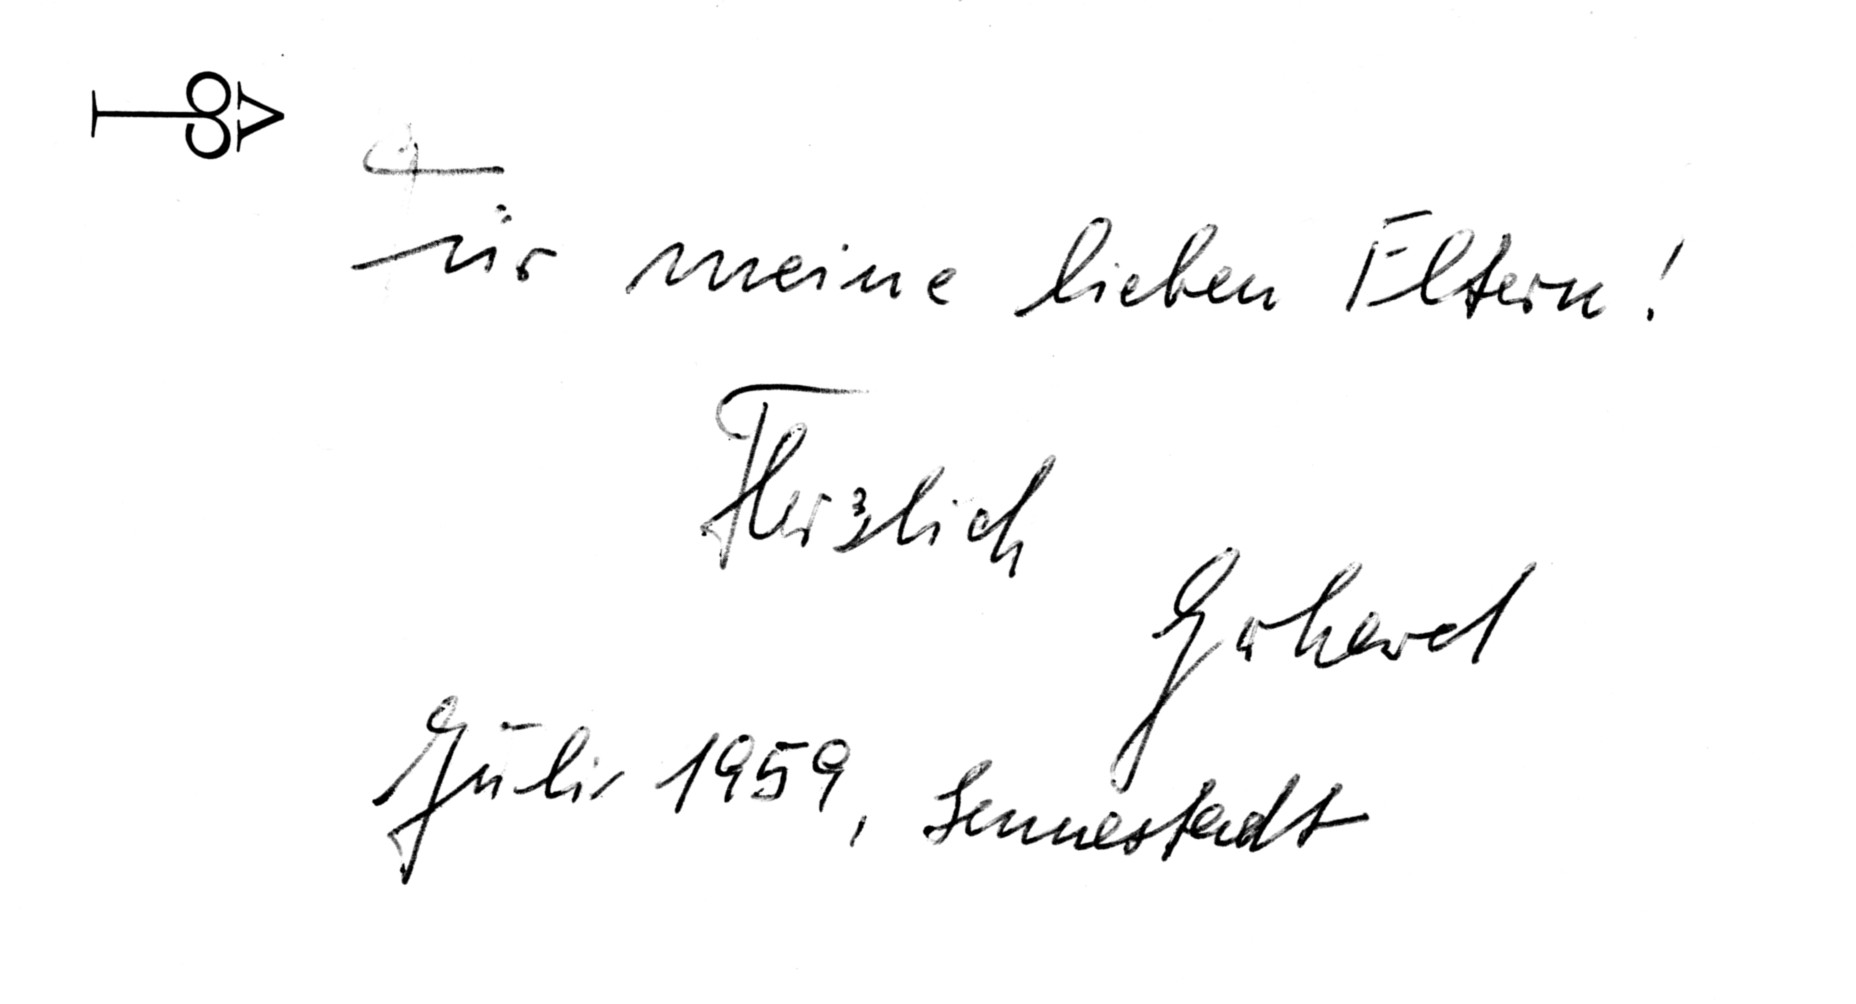 Für meine lieben Eltern!
Herzlich
Gerhard
Juli 1959, Sennestadt